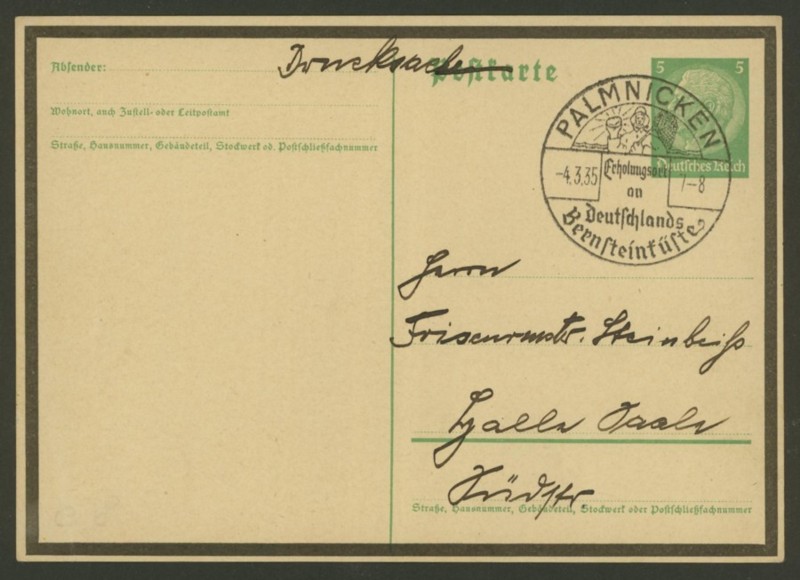 Drucksache
Postkarte
Absender:
Wohnort, auch Zustell- oder Leitpostamt
Straße, Hausnummer, Gebäudeteil, Stockwerk od. Postschließfachnummer
5 5
Deutsches Reich
PALMNICKEN
-4.3.35 7-8
Erholungsort
an
Deutschlands
Bernsteinküste
Herrn
Friseurmstr. Steinbeiß
Halle Saale
Südstr
Straße, Hausnummer, Gebäudeteil, Stockwerk oder Postschließfachnummer